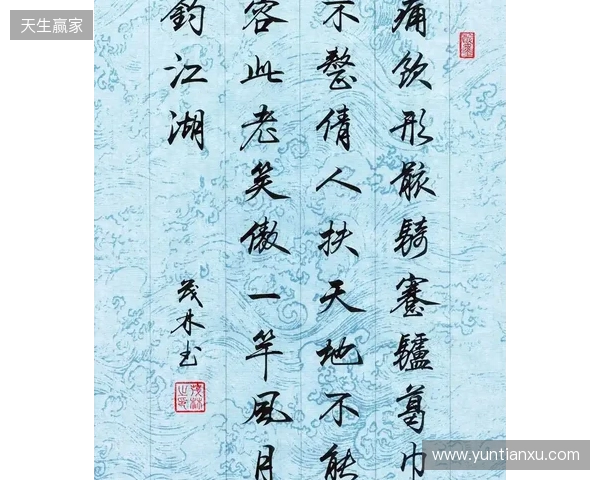 天生赢家
痛饮形骸骑蹇驴葛巾
不整倩人扶天地不能
容此老笑傲一竿风月
钓江湖
茂林书
www.yuntianxu.com